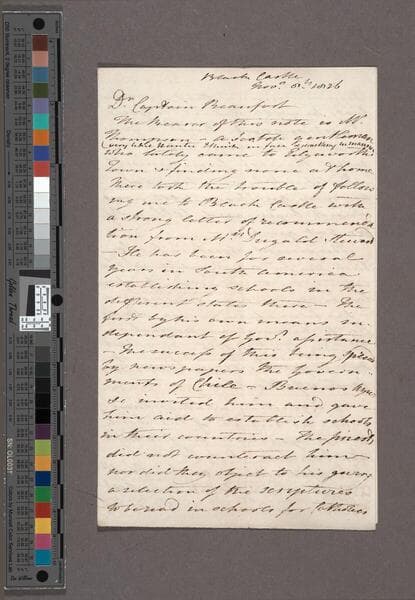 Black Castle
Nov.r 8th 1826
Dr Captain Beaufort
The Bearer of this note is Mr
Thompson – a Scotch gentleman
very like Hunter I think in face
who lately came to Edgeworths
Town & finding none at home
there took the trouble of follow
ing me to Black Castle with
a strong letter of recommenda
tion from Mrs Dugald Stewart
– He has been for several
years in South America
establishing schools in the
different States there – The
first by his own means in
dependant of Govt. assistance
– The success of this being
by newspapers the Govern-
ments of Chile – Buenos Ayres
&c invited him and gave
him aid to establish schools
in their countries – The priests
did not counteract him
nor did they object to his giving
a selection of the Scriptures
to be read in schools for Catholics